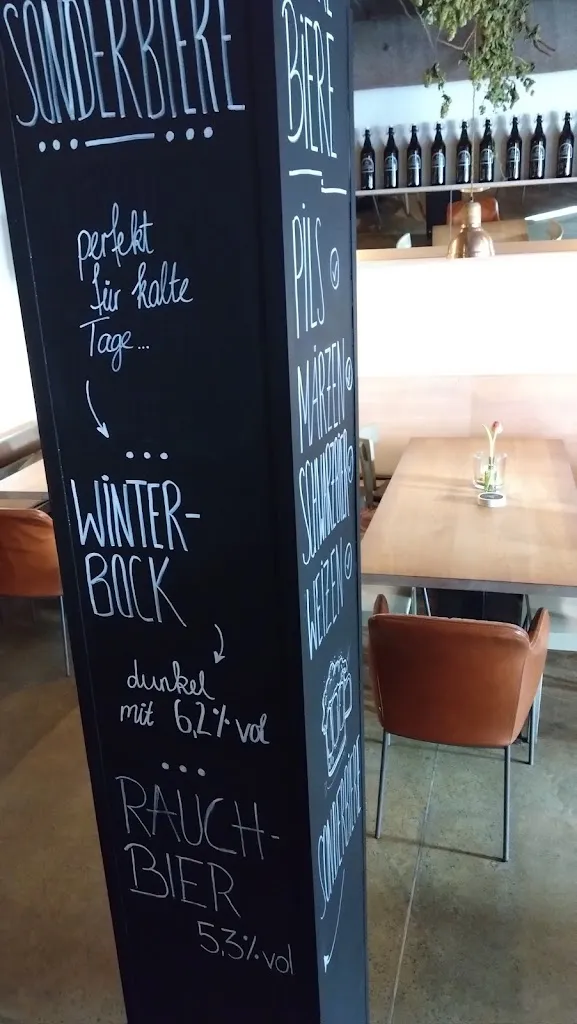 SONDERBIERE
perfekt
für kalte
Tage...
WINTER-
BOCK
dunkel
mit 6,2% vol
RAUCH-
BIER
5,3% vol
BIERE
PILS
MÄRZEN
SCHWARZBIER
WEIZEN
SONDERBIERE